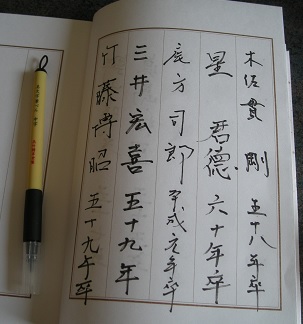 木佐貫 剛 五十八年卒
星 君德 六十年卒
方 司郎 平成元年卒
三井宏喜 五十九年
竹藤博昭 五十九年卒